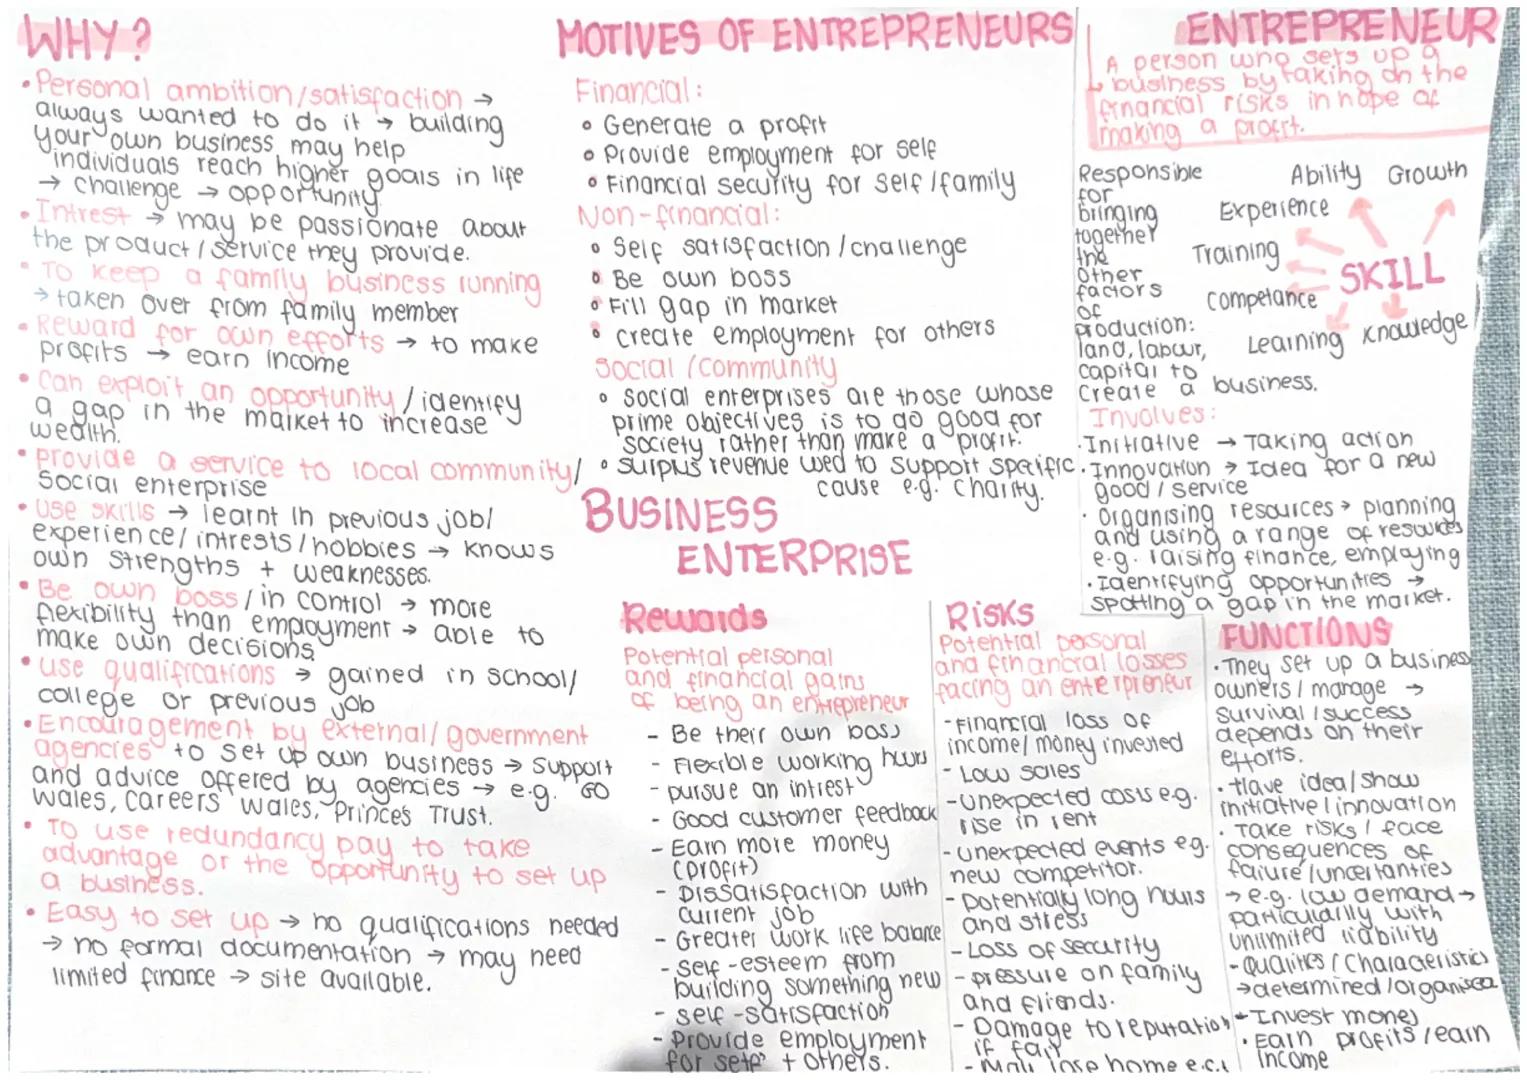 WHY?
• Personal ambition/satisfaction →
always wanted to do it → building
your own business may help
individuals reach higher goals in life
→ challenge → opportunity.
• Intrest → may be passionate about
the product / service they provide.
• To keep a family business running
→ taken over from family member
• Reward for own efforts → to make
profits → earn income
• Can exploit an opportunity / identify
a gap in the market to increase
wealth.
• provide a service to local community/
Social enterprise
• Use skills → learnt in previous job/
experience/ intrests / hobbies → knows
own strengths + weaknesses.
• Be own boss / in control → more
flexibility than employment → able to
make own decisions
• use qualifications → gained in school/
college or previous job
• Encouragement by external/government
agencies to set up own business → support
and advice offered by agencies → e.g. Go
Wales, careers Wales, Princes Trust.
• To use redundancy pay to take
advantage or the opportunity to set up
a business.
• Easy to set up → no qualifications needed
→ no formal documentation → may need
limited finance → site available.
MOTIVES OF ENTREPRENEURS
Financial:
• Generate a profit
• Provide employment for self
• Financial security for self / family
Non-financial:
• Self satisfaction / challenge
• Be own boss
• Fill gap in market
• create employment for others
Social / community
• social enterprises are those whose
prime objectives is to do good for
society rather than make a profit.
• surplus revenue used to support specific
cause e.g. charity.
BUSINESS
ENTERPRISE
Rewards
Potential personal
and financial gains
of being an entrepreneur
- Be their own boss
- Flexible working hours
- pursue an intrest
- Good customer feedback
- Earn more money
(profit)
- Dissatisfaction with
current job
- Greater work life balance
- self-esteem from
building something new
- self-satisfaction
- Provide employment
for self + others.
Risks
Potential personal
and financial losses
facing an enterpreneur
- Financial loss of
income/ money invested
- Low sales
- Unexpected costs e.g.
rise in rent
- unexpected events e.g.
new competitor.
- potentially long hours
and stress
- Loss of security
- pressure on family
and friends.
- Damage to reputation
if fail
- May lose home e.c.t
ENTREPRENEUR
A person who sets up a
business by taking on the
financial risks in hope of
making a profit.
Responsible
for
bringing
together
the
other
factors
of
production:
land, labour,
capital to
create a business.
Ability Growth
Experience
Training
SKILL
competance
Learning knowledge
Involves:
• Initiative → Taking action
• Innovation → Idea for a new
good / service
• Organising resources → planning
and using a range of resources
e.g. raising finance, employing
• Identifying opportunities →
spotting a gap in the market.
FUNCTIONS
• They set up a business
owners / manage →
survival / success
depends on their
efforts.
• Have idea/show
initiative / innovation
• Take risks / face
consequences of
failure/uncertanties
→ e.g. low demand →
particularily with
unlimited liability
- Qualities / Characteristics
→ determined / organised
- Invest money
• Earn profits / earn
income